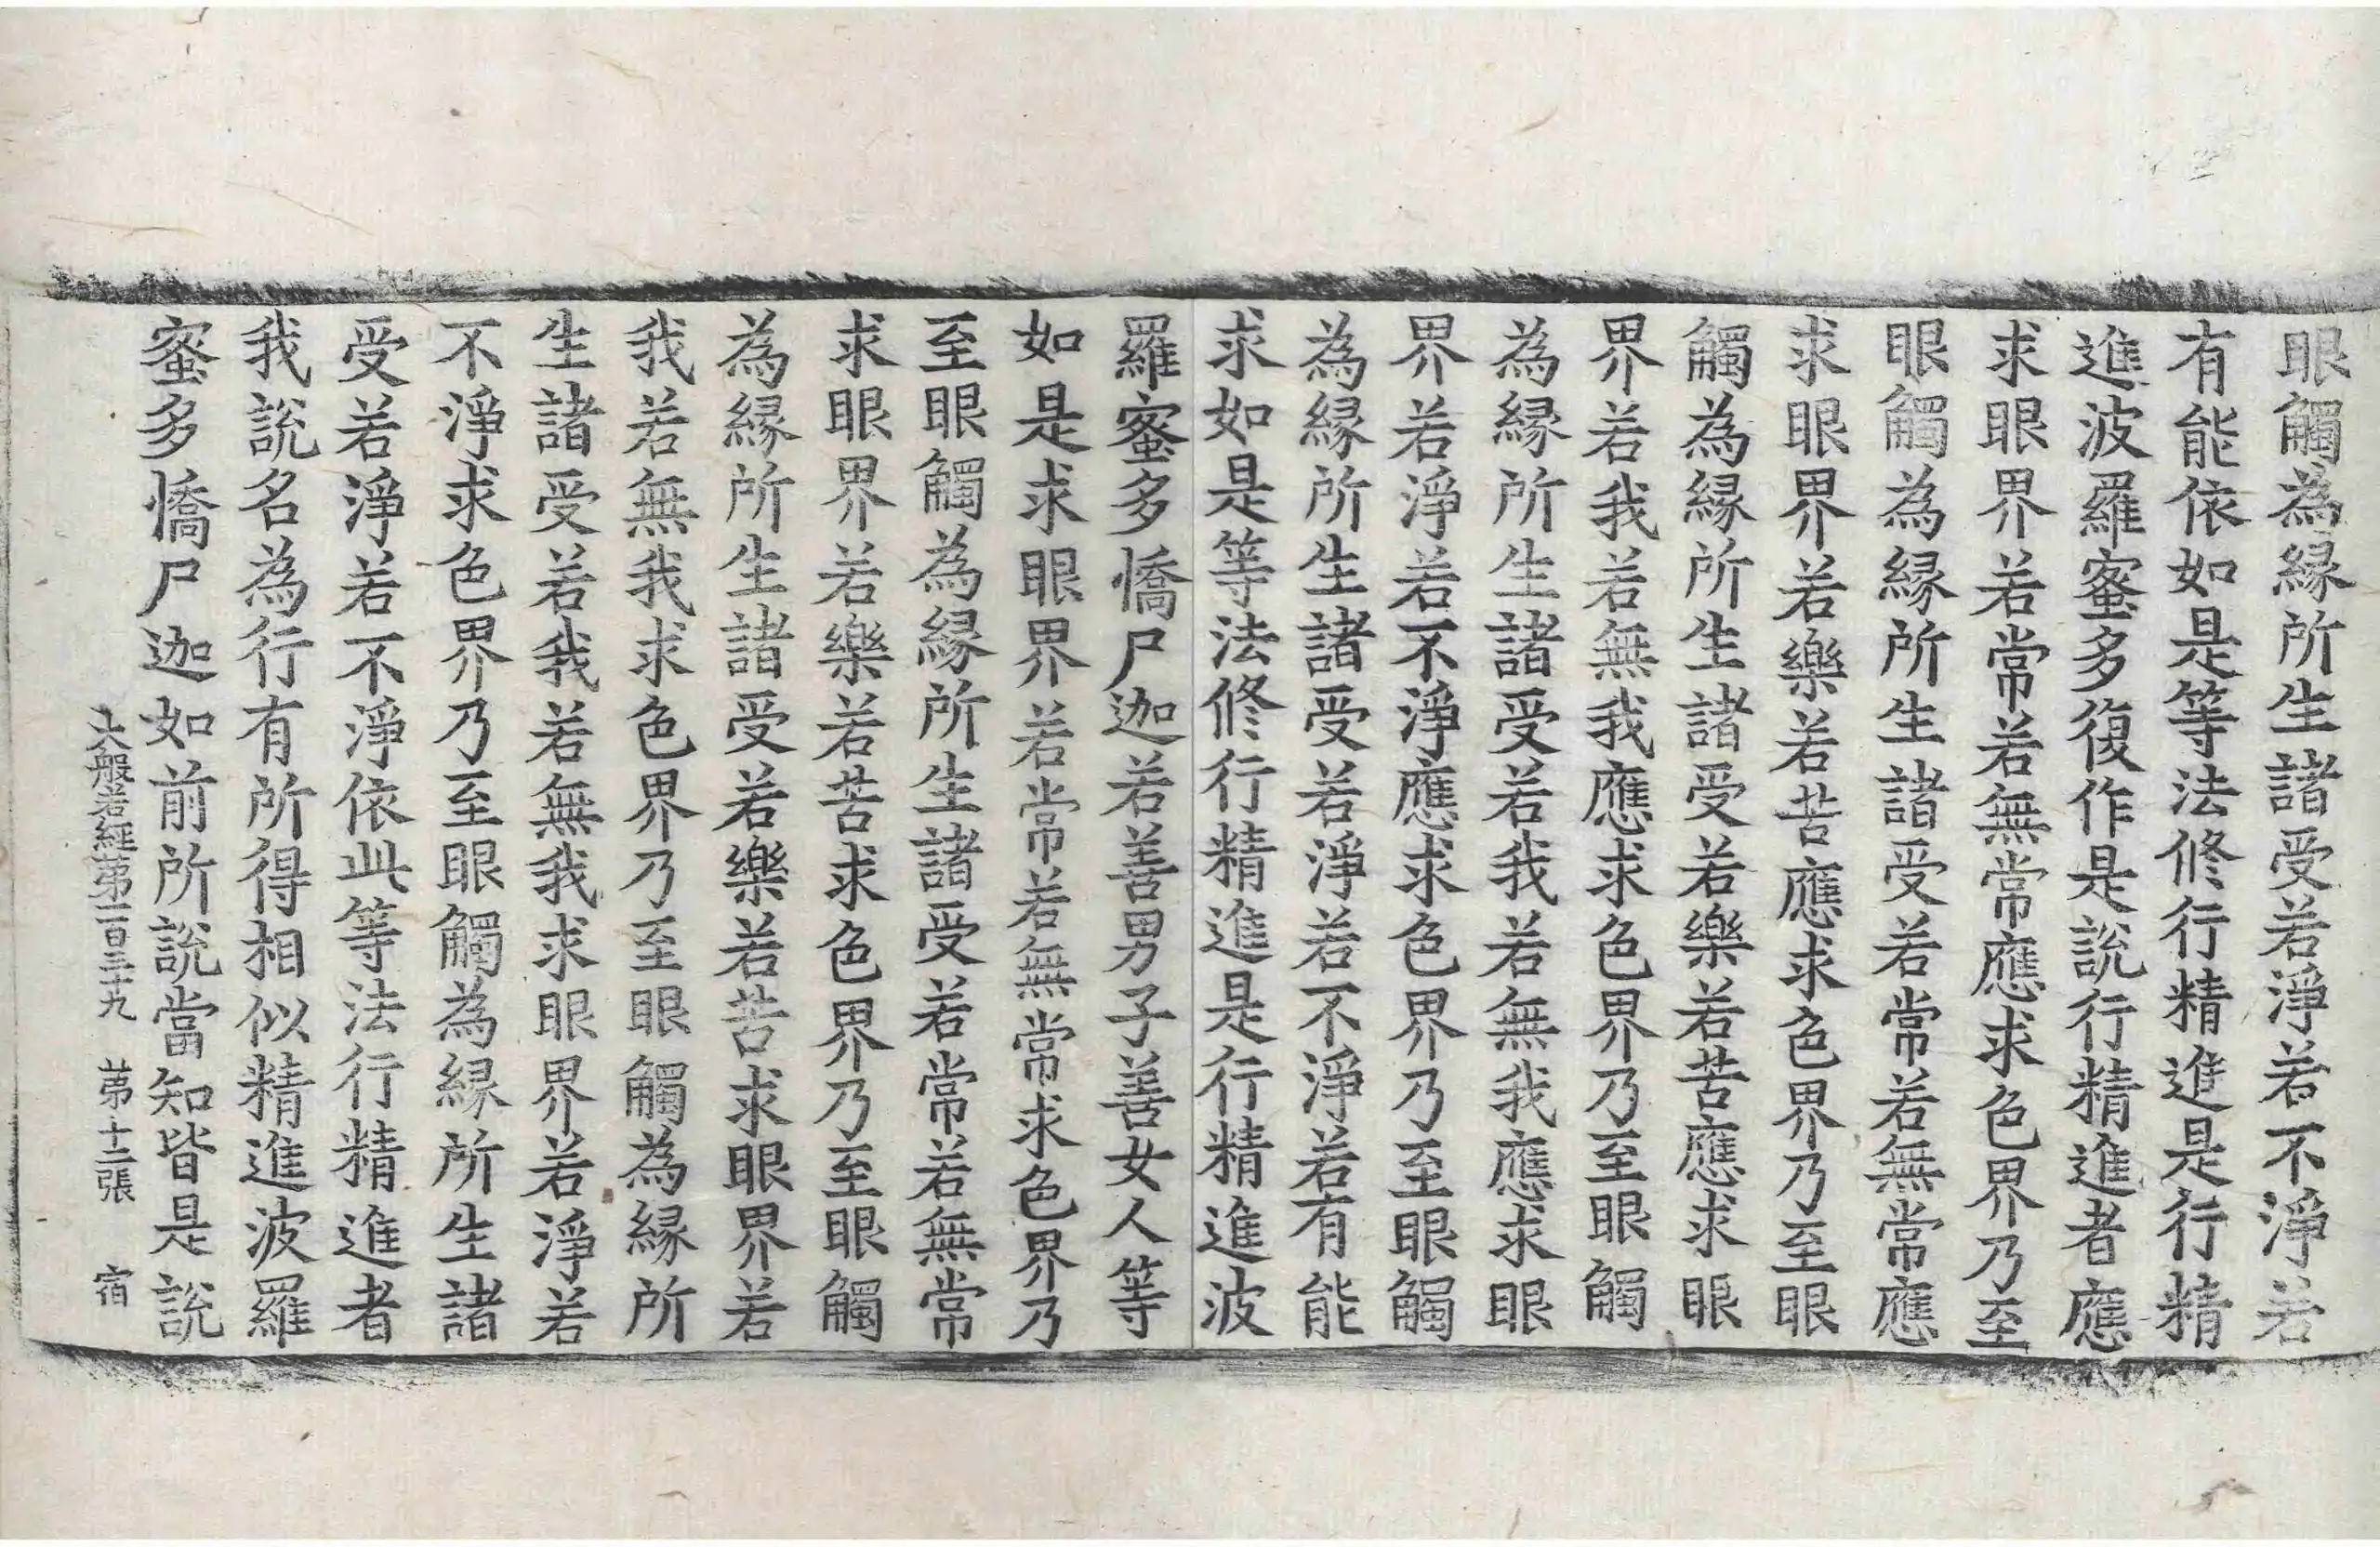 眼觸為緣所生諸受若淨若不淨若
有能依如是等法修行精進是行精
進波羅蜜多復作是說行精進者應
求眼界若常若無常應求色界乃至
眼觸為緣所生諸受若常若無常應
求眼界若樂若苦應求色界乃至眼
觸為緣所生諸受若樂若苦應求眼
界若我若無我應求色界乃至眼觸
為緣所生諸受若我若無我應求眼
界若淨若不淨應求色界乃至眼觸
為緣所生諸受若淨若不淨若有能
求如是等法修行精進是行精進波
羅蜜多憍尸迦若善男子善女人等
如是求眼界若常若無常求色界乃
至眼觸為緣所生諸受若常若無常
求眼界若樂若苦求色界乃至眼觸
為緣所生諸受若樂若苦求眼界若
我若無我求色界乃至眼觸為緣所
生諸受若我若無我求眼界若淨若
不淨求色界乃至眼觸為緣所生諸
受若淨若不淨依此等法行精進者
我說名為行有所得相似精進波羅
蜜多憍尸迦如前所說當知皆是說
大般若經第一百三十九　第十二張　宿